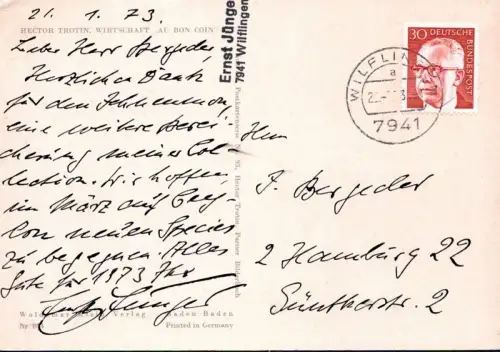 21. 1. 73.
HECTOR TROTIN, WIRTSCHAFT „AU BON COIN
Lieber Herr Bergeder,
Herzlichen Dank
für den
eine weitere Berei-
cherung meiner Col-
lection. Wir hoffen,
im März auf Cey-
lon neuen Species
zu begegnen. Alles
Gute für 1973 Ihr
Ernst Jünger
Woldemar Klein Verlag Baden Baden
Nr 194 Printed in Germany
Ernst Jünger
7941 Wilflingen
Hector Trotin Pariser Bilderbuch
30 DEUTSCHE BUNDESPOST
WILFLINGEN
a
7941
Herrn
J. Bergeder
2 Hamburg 22
Güntherstr. 2